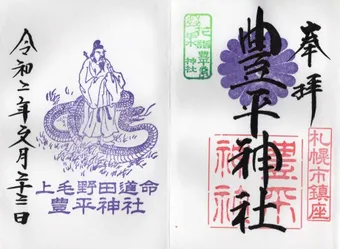 奉拝
札幌市鎮座
豊平神社
豊平神社
令和二年文月二十三日
上毛野田道命
豊平神社